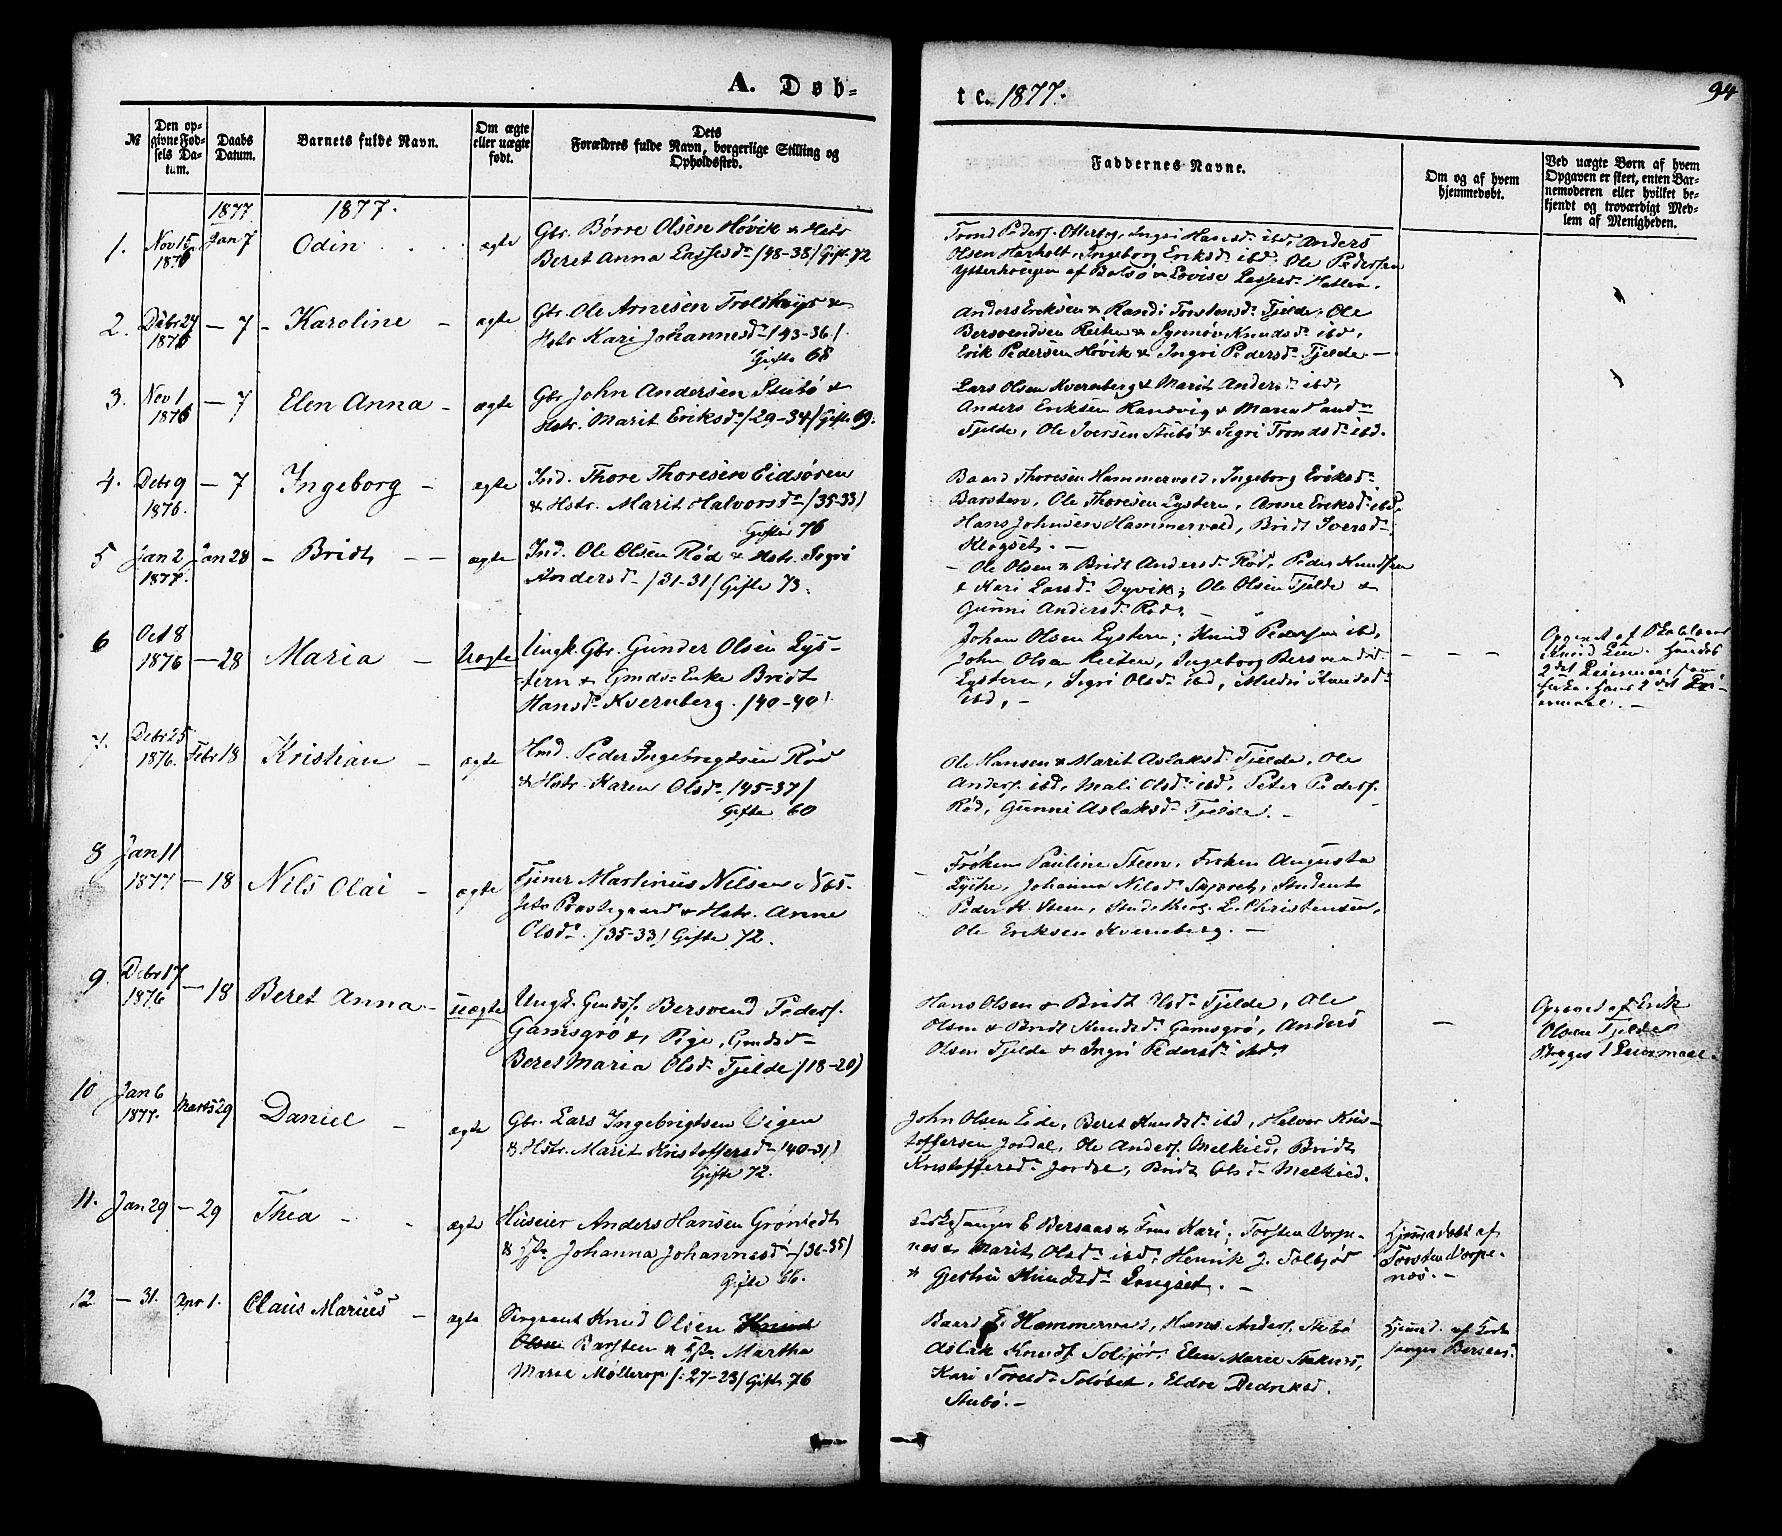 A. Døb-
te. 1877.
94
№
Den opgivne Fødsels Datum.
Daabs Datum.
Barnets fulde Navn.
Om ægte eller uægte født.
Dets Forældres fulde Navn, borgerlige Stilling og Opholdssted.
Faddernes Navne.
Om og af hvem hjemmedøbt.
Ved uægte Børn af hvem Opgaven er skeet, enten Barnemoderen eller hvilket bekjendt og troværdigt Medlem af Menigheden.
1877.
1877.
1. Nov 15 1876 Jan 7 Odin ægte
Gbr. Børre Olsen Høvik & Hstr
Beret Anna Lassesd. /48-38/ Gift 72
Trond Peders. Otterbog, Ingri Hansd. ibd, Anders
Olsen Harholt, Ingeborg Eriksd. ibd. Ole Pedersen
af Bolsø & Lovise Lassesd.
2. Debr 27 1876 — 7 - Karoline - ægte
Gbr. Ole Arnesen &
Hstr Kari Johannesd. /43-36/
Gifte 68
Anders Eriksen & Randi Torstensd. Tjelde, Ole
Bersvendsen Reiten & Synnøv Knudsd. ibd,
Erik Pedersen Høvik & Ingri Pedersd. Tjelde. —
3. Nov 1 1876 — 7 Elen Anna - ægte
Gbr John Andersen Stubø &
Hstr. Marit Eriksd. /29-34/ Gifte 69.
Lars Olsen Kvernberg & Marit Andersd. ibd,
Anders Eriksen &
Tjelde, Ole Iversen Stubø & Sigri Trondsd. ibd.
4. Debr 9 1876. — 7 Ingeborg - ægte
Ind. Thore Thoresen Eidsøren
& Hstr. Marit Halvorsd. /35-33/
Gifte 76
Baard Thoresen Hammervold, Ingeborg Eriksd.
Barsten, Ole Thoresen Lystern, Anne Eriksd. ibd,
Hans Johnsen Hammervold, Bridt Iversd.
Klogset. —
5 Jan 2 1877. Jan 28 - Bridt - - ægte
Ind. Ole Olsen Rød & Hstr. Sigri
Andersd. /31-31/ Gifte 73.
- Ole Olsen & Bridt Andersd. Rød, Peder Knudsen
& Kari Larsd. Dyvik; Ole Olsen Tjelde &
Gunni Andersd. Rød.
6 Oct 8 1876 — 28 Maria - Uægte
Ungk. Gbr. Gunder Olsen Lys-
tern & Gmds-Enke Bridt
Hansd. Kvernberg. /40-40/
Johan Olsen Lystern; Knud Pedersen ibd,
John Olsen Reiten, Ingeborg Bersvendsd.
Lystern, Sigri Olsd. ibd, Mildri Knudsd.
ibd, -
Knud
2det Leiermaal,
hans 2det Lei-
ermaal. -
7. Debr 25 1876. Febr 18 Kristian - ægte
Hmd. Peder Ingebregtsen Rød
& Hstr. Karen Olsd. /45-37/
Gifte 60
Ole Hansen & Marit Aslaksd. Tjelde, Ole
Anders. ibd, Mali Olsd. ibd, Peter Peders.
Rød, Gunni Aslaksd. Tjelde. -
8 Jan 11 1877 — 18 Nils Olai - ægte
Tjener Martinus Nilsen, Næs-
sets Præstegaard & Hstr. Anne
Olsd. /35-33/ Gifte 72.
Frøken Pauline Steen, Frøken Augusta
Johanna Nilsd. Skjøret, Student
Peder K. Steen, L. Christensen,
Ole Eriksen Kverneberg. -
9. Debr 17 1876 — 18 Beret Anna - uægte
Ungk. Gmds. Bersvend Peders.
Gamsgrø & Pige, Gmdsd.
Beret Maria Olsd. Tjelde /18-20/
Hans Olsen & Bridt Olsd. Tjelde, Ole
Olsen & Bridt Knudsd. Gamsgrø, Anders
Olsen Tjelde & Ingri Pedersd. ibd.
—
Opgivet af Erik
Olsen Tjelde
Begges 1 Leiermaal.
10 Jan 6 1877. Marts 29 Daniel - ægte
Gbr. Lars Ingebrigtsen Vigen
& Hstr. Marit Kristoffersd. /40-31/
Gifte 72.
John Olsen Eide, Beret Knudsd. ibd, Halvor Kris-
toffersen Jordal, Ole Anders. Melkild, Bridt
Kristoffersd. Jordal, Bridt Olsd. Melkild.
11. Jan 29 — 29 Thea - - ægte
Huseier Anders Hansen Grønstedt
& Hstr Johanna Johannesd. /36-35/
Gifte 66.
Kirkesanger E Bersaas & Frue Kari; Torsten Vorpe-
næs & Marit Olsd. ibd. Henrik J. Solbjør
& Gjertru Knudsd. Longset. -
Hjemmedøbt af
Torsten Vorpe-
næs. -
12 — 31. Apr 1. Claus Marius - ægte
Sergeant Knud Olsen Knud
Olsen Barsten & Hstr Martha
Marie Møllerop /27-23/ Gifte 76
Baard T. Hammervold, Hans Anders. Stubø
Aslak Knuds. Solbjør, Elen Marie
Kari Toresd.
Stubø. -
Hjemmd. af Kirke-
sanger Bersaas.